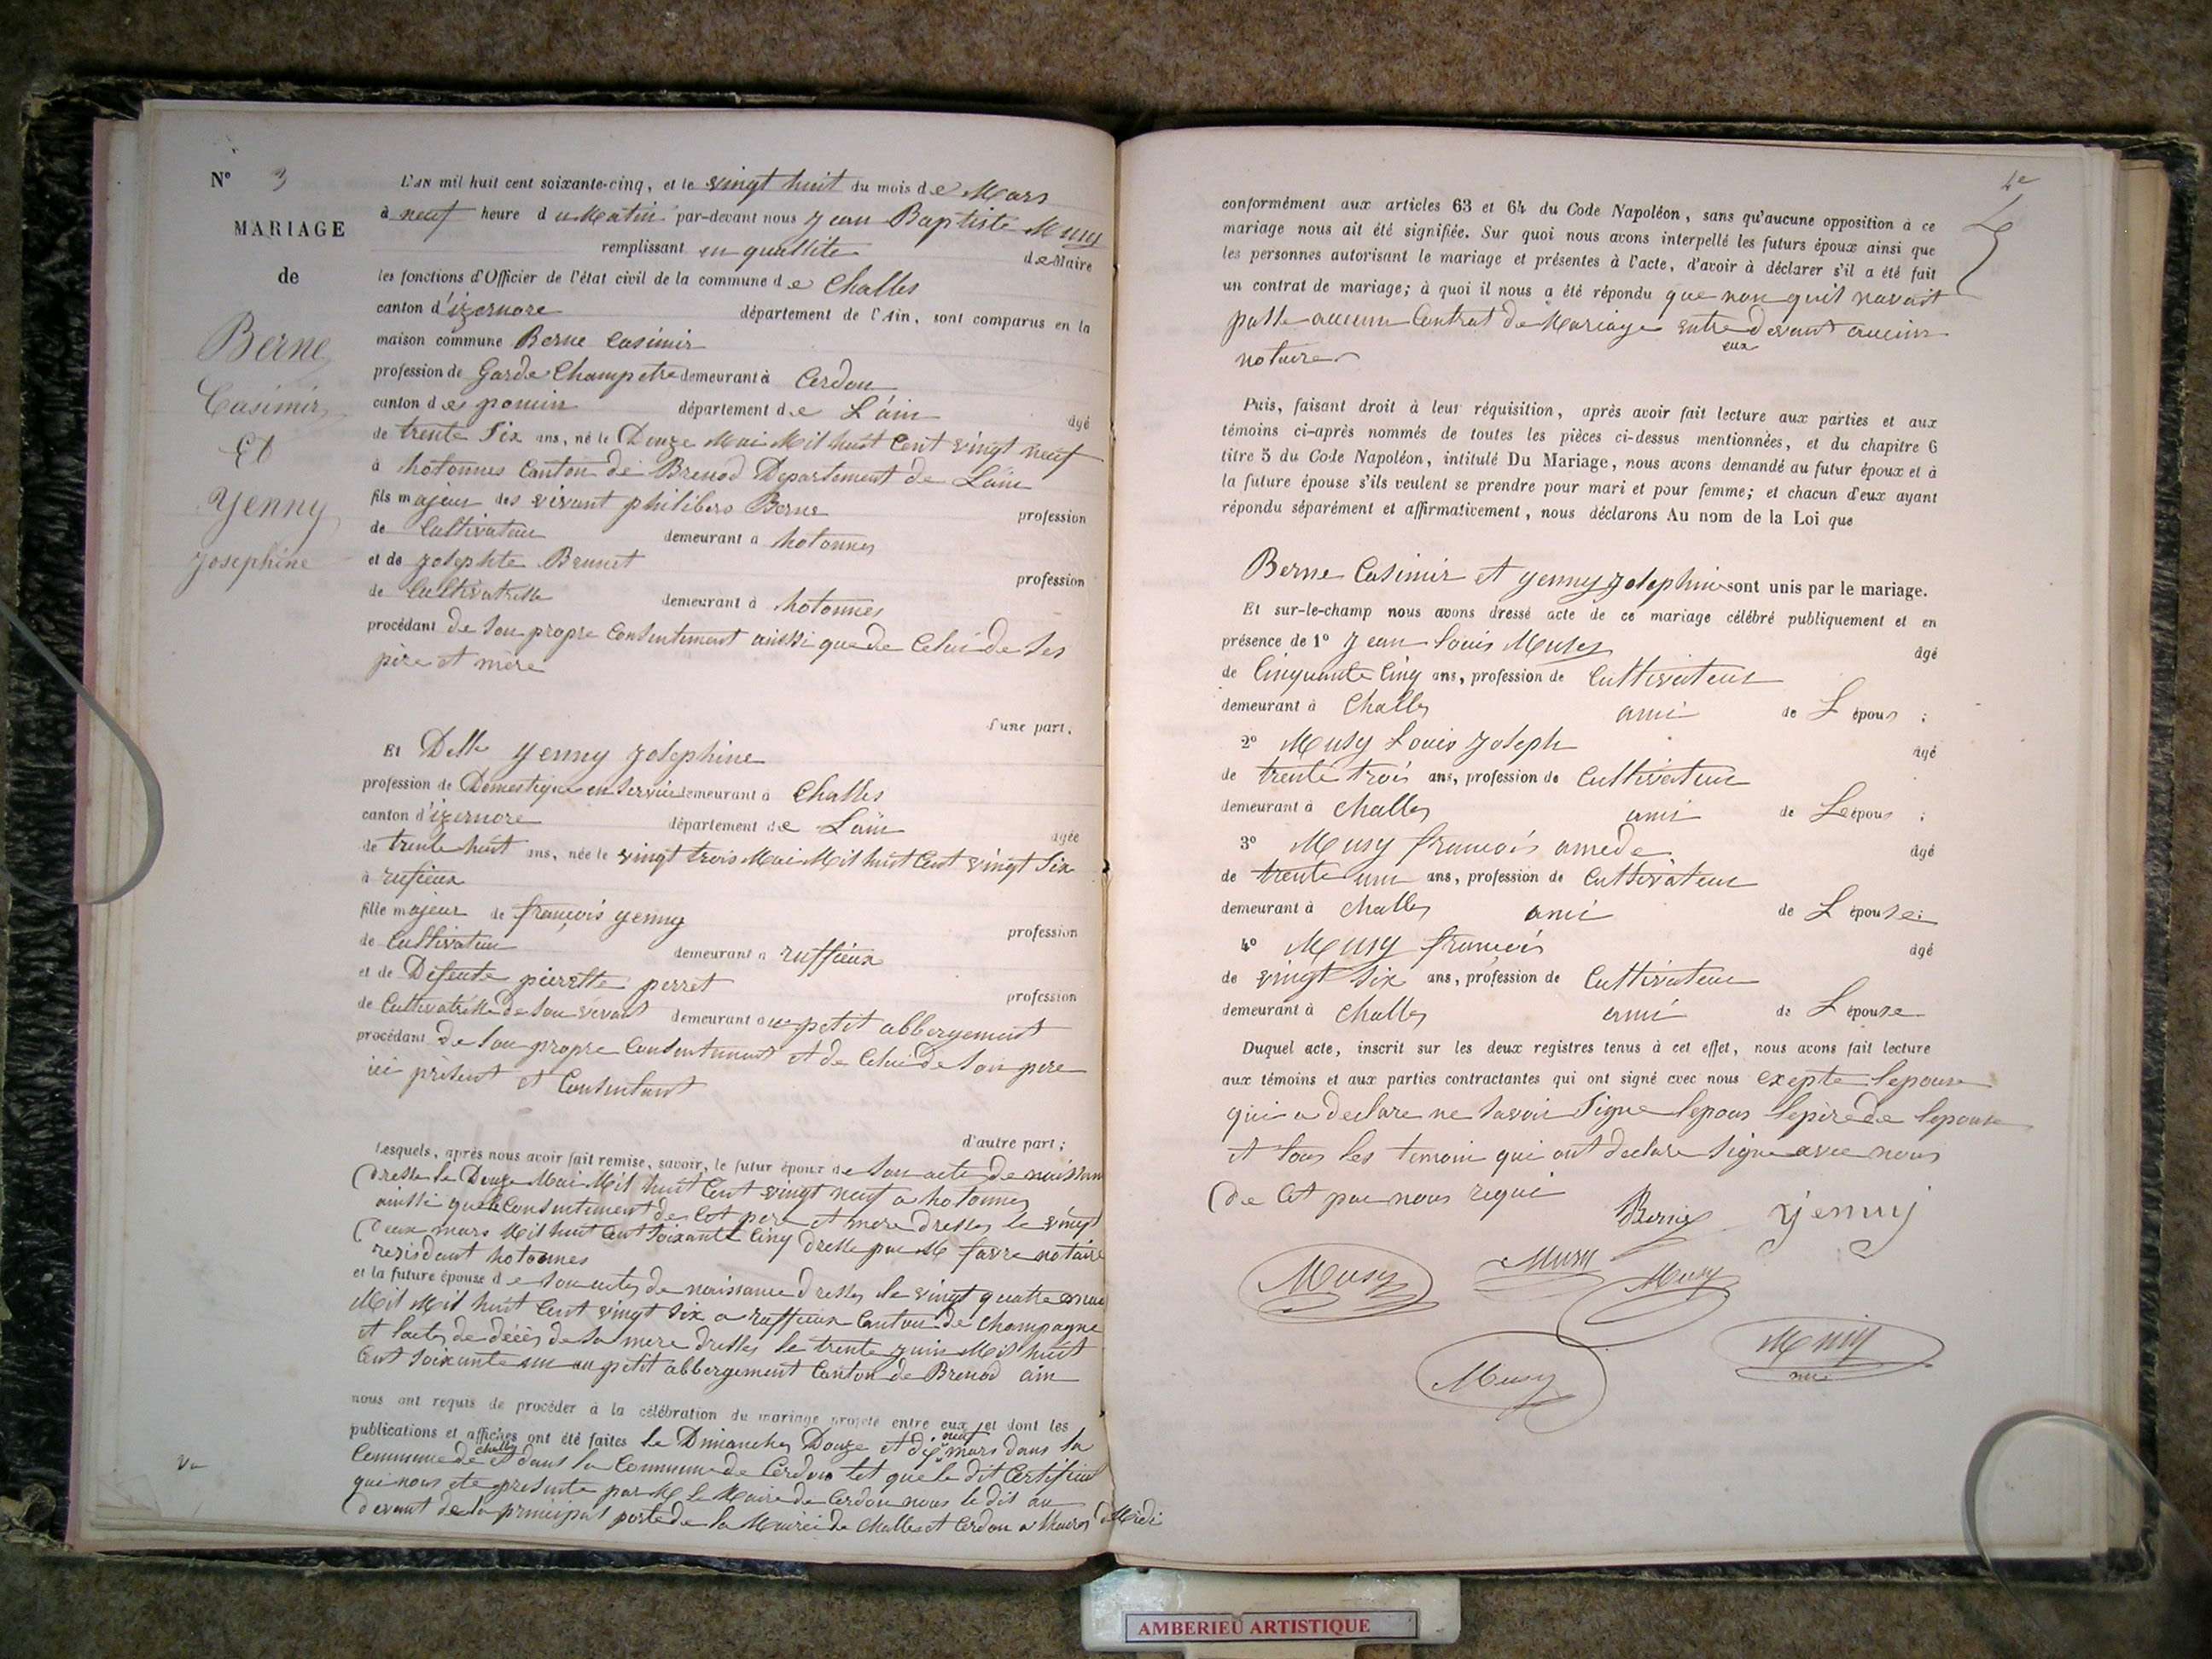 N° 3
MARIAGE
de
Berne
Casimir
Et
Yenny
Josephine
L'AN mil huit cent soixante-cinq, et le vingt huit du mois de Mars
à neuf heure du Matin par-devant nous Jean Baptiste Musy
remplissant en quallité de Maire
les fonctions d'Officier de l'état civil de la commune de Challes
canton d'izernore département de l'Ain, sont comparus en la
maison commune Berne Casimir
profession de Garde Champetre demeurant à Cerdon
canton de poncin département de L'ain âgé
de trente Six ans, né le Douze Mai Mil huit Cent vingt neuf
à hotonnes Canton de Brenod Departement de Lain
fils majeur des vivant philibers Berne profession
de Cultivateur demeurant à hotonnes
et de Josephte Brunet profession
de Cultivatrisse demeurant à hotonnes
procédant de son propre Consentement ainssi que de Celui de Ses
père et mère
d'une part.
Et Dlle Yenny Josephine
profession de Domestique en Service demeurant à Challes
canton d'izernore département de Lain âgée
de trente huit ans, née le vingt trois Mai Mil huit Cent vingt Six
à rufieux
fille majeur de françois yenny profession
de Cultivateur demeurant à ruffieux
et de Défunte pierette perret profession
de Cultivatrisse de son vivant demeurant au petit abbergement
procédant de Son propre Consentement et de Celui de Son pere
ici présent et Consentant
d'autre part;
Lesquels, après nous avoir fait remise, savoir, le futur époux de Son acte de naissan
Dresse le Douze Mai Mil huit Cent vingt neuf a hotonnes
ainssi que le Consentement de Cet pere et mere Dresses le vingt
Deux mars Mil huit Cent Soixante Cinq dresse par M favre notaire
residant hotonnes
et la future épouse de son actes de naissance dresses le vingt quatre mai
Mil Mil huit Cent vingt Six a ruffieux Canton de Champagne
et lactes de décès de Sa mere dresses le trente juin Mil huit
Cent Soixante un au petit abbergement Canton de Brenod ain
nous ont requis de procéder à la célébration du mariage projeté entre eux, et dont les
publications et affiches ont été faites le Dimanches Douze et dix neuf mars dans la
Commune de challes et dans la Commune de Cerdon tel que le dit Certificat
qui nous ete presente par M le Maire de Cerdon nous le dit au
Devant de la principal porte de la Mairie de Challes et Cerdon a lheures de Midi
4e
conformément aux articles 63 et 64 du Code Napoléon, sans qu'aucune opposition à ce
mariage nous ait été signifiée. Sur quoi nous avons interpellé les futurs époux ainsi que
les personnes autorisant le mariage et présentes à l'acte, d'avoir à déclarer s'il a été fait
un contrat de mariage; à quoi il nous a été répondu que non quil navait
passe aucun Contrat de Mariage entre eux devant aucun
notaire
Puis, faisant droit à leur réquisition, après avoir fait lecture aux parties et aux
témoins ci-après nommés de toutes les pièces ci-dessus mentionnées, et du chapitre 6
titre 5 du Code Napoléon, intitulé Du Mariage, nous avons demandé au futur époux et à
la future épouse s'ils veulent se prendre pour mari et pour femme; et chacun d'eux ayant
répondu séparément et affirmativement, nous déclarons Au nom de la Loi que
Berne Casimir et yenny Josephine sont unis par le mariage.
Et sur-le-champ nous avons dressé acte de ce mariage célébré publiquement et en
présence de 1° Jean Louis Musy âgé
de Cinquante Cinq ans, profession de Cultivateur
demeurant à Challes ami de L époux ;
2° Musy Louis Joseph âgé
de trente trois ans, profession de Cultivateur
demeurant à Challes ami de L époux ;
3° Musy françois amede âgé
de trente un ans, profession de Cultivateur
demeurant à Challes ami de L épouse;
4° Musy françois âgé
de vingt Six ans, profession de Cultivateur
demeurant à Challes ami de L épouse
Duquel acte, inscrit sur les deux registres tenus à cet effet, nous avons fait lecture
aux témoins et aux parties contractantes qui ont signé avec nous exepte lepouse
qui a declare ne savoir Signe lepoux lepère de lepouse
et tous les temoin qui ont declare Signe avec nous
De Cet par nous requi
Berne yenny
Musy Musy Musy
Musy Musy
AMBERIEU ARTISTIQUE